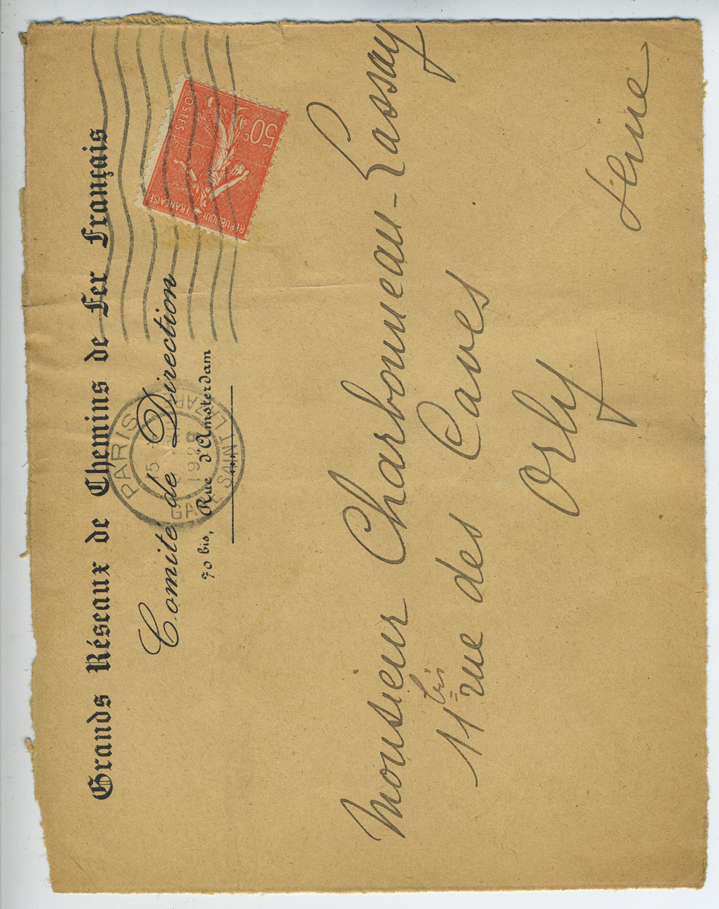 Grands Réseaux de Chemins de Fer Français
Comité de Direction
70 bis, Rue d'Amsterdam
PARIS
1928
GARE SAINT LAZARE
50c
POSTES
REPUBLIQUE FRANÇAISE
Monsieur Charbonneau-Lassay
11 bis rue des Caves
Orly
Seine